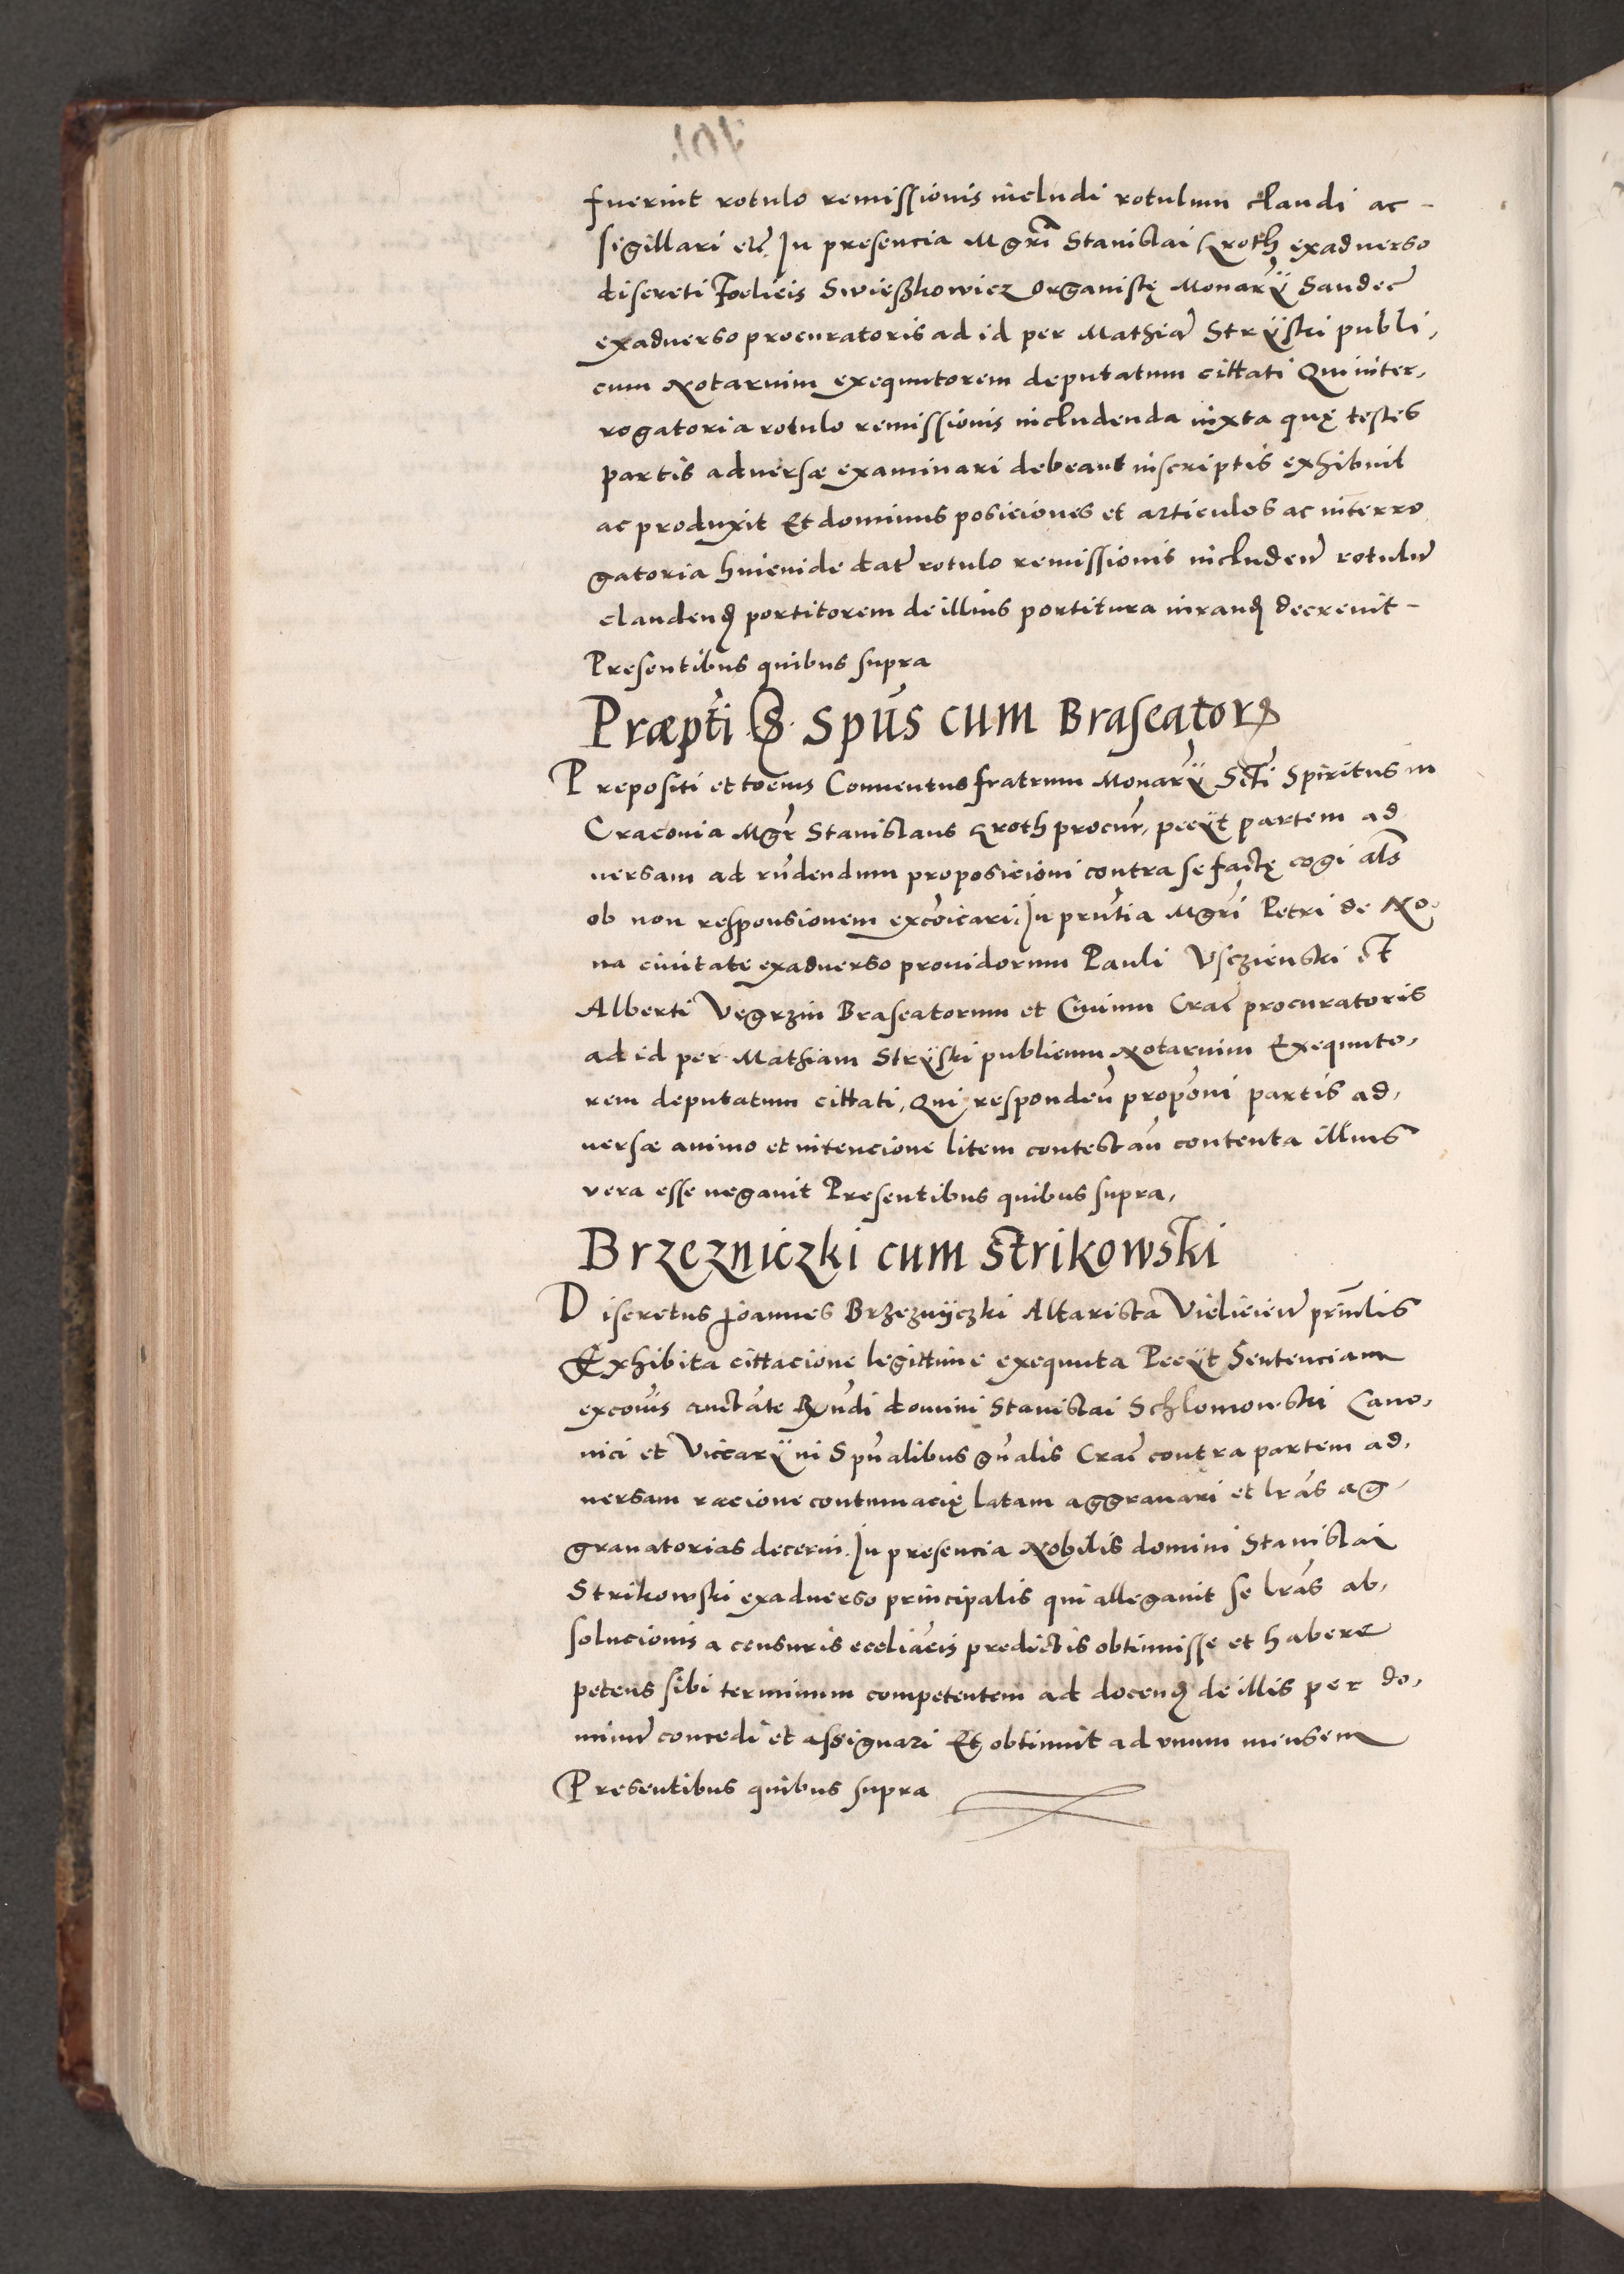 fuerint rotulo remissionis includi rotulum claudi ac -
sigillari etc̃ In presencia Mgrı̃ Stanislai Kroth exaduerso
discreti Foelicis Swieszkowicz Organistę Monarÿ Sandec̃
exaduerso procuratoris ad id per Mathiã Strÿski publi,
cum Notarium exequutorem deputatum cittati Qui inter,
rogatoria rotulo remissionis includenda iuxta quę testes
partis aduersæ examinari debeant inscriptis exhibuit
ac produxit Et dominus posiciones et articulos ac interro
gatoria hincinde dat̃ rotulo remissionis includeñ rotulũ
claudenđ portitorem de illius portitura iuranđ decreuit -
Presentibus quibus supra
Præpti S. Spũs cum Braseatorꝝ
Prepositi et tocius Conuentus fratrum Monarÿ Sctĩ Spiritus in
Cracouia Mgr̃ Stanislaus Kroth procur̃, peciÿt partem ad
uersam ad rñdendum proposicioni contra se factę cogi alõs
ob non responsionem excoĩcari. In pñtia Mgrĩ Petri de No,
ua ciuitate exaduerso prouidorum Pauli Vsczienski et
Alberti Vegrzin Braseatorum et Ciuium Crac̃ procuratoris
ad id per Mathiam Strÿski publicum Notarium Exequuto,
rem deputatum cittati, Qui respondeñ proponi partis ad,
uersæ animo et intencione litem contestañ contenta illius
vera esse negauit Presentibus quibus supra,
Brzezniczki cum Strikowski
Discretus Joannes Brzeznÿczki Altarista Vielicieñ prinĩclis
Exhibita cittacione legittime exequuta Peciÿt Sentenciam
excoĩs auctãte Rñdi domini Stanislai Schlomowski Cano,
nici et Viccarÿ in Spũalibus gñalis Crac̃ contra partem ad,
uersam racione contumacię latam aggrauari et lrãs ag
grauatorias decerni. In presencia Nobilis domini Stanislai
Strikowski exaduerso principalis qui allegauit se lrãs ab,
solucionis a censuris eccliãcis predictis obtinuisse et habere
petens sibi terminum competentem ad docenđ de illis per do,
minũ concedi et assignari Et obtinuit ad vnum mensem
Presentibus quibus supra